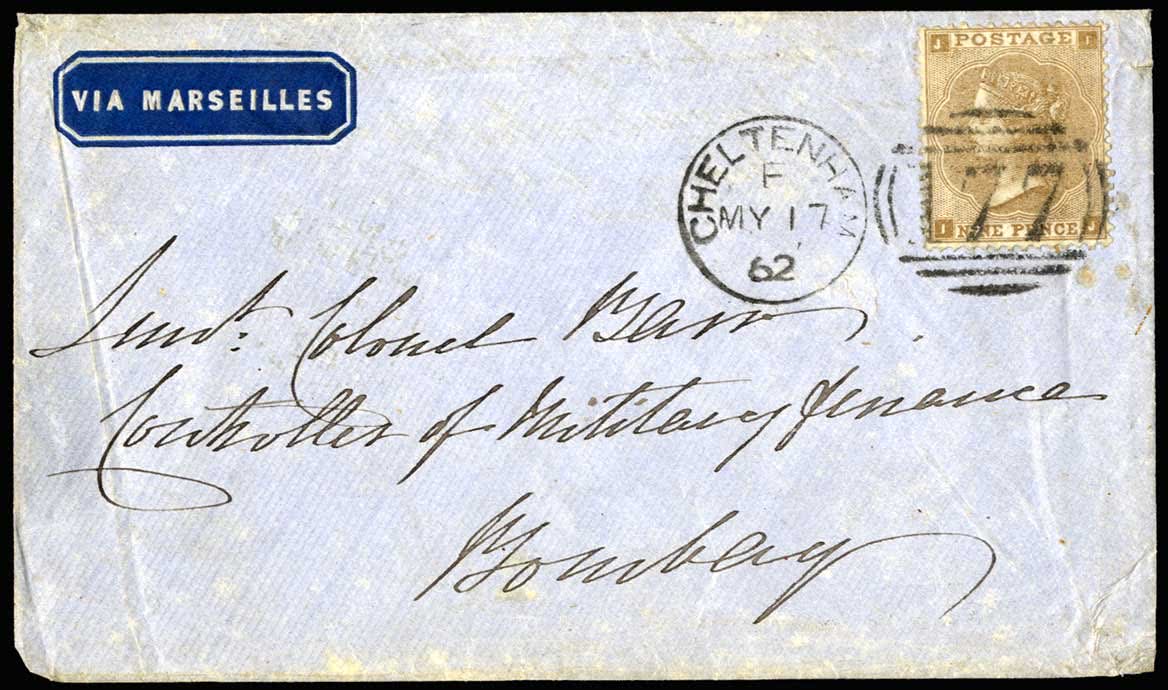 VIA MARSEILLES
J POSTAGE I
CHELTENHAM
F
MY 17
62
177
I NINE PENCE J
Lieut. Colonel Barr
Controller of Military Finance
Bombay